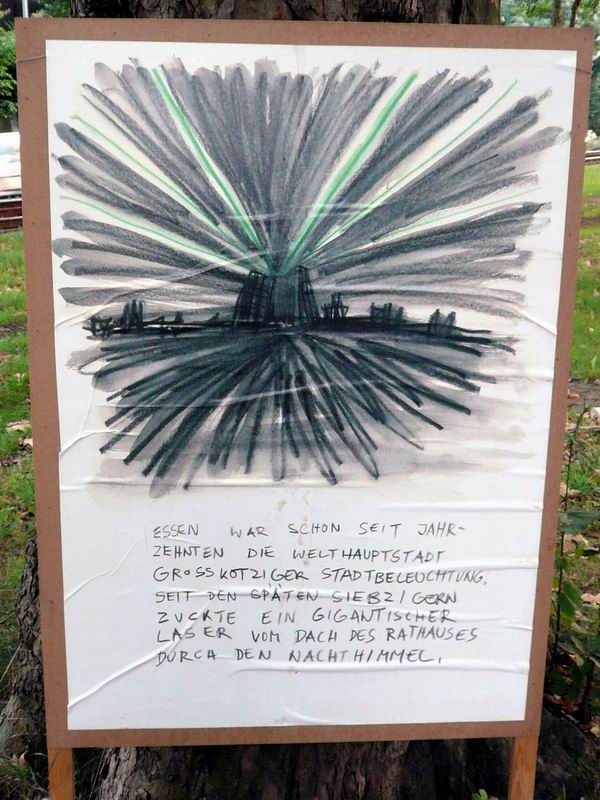 ESSEN WAR SCHON SEIT JAHR-
ZEHNTEN DIE WELTHAUPTSTADT
GROSSKOTZIGER STADTBELEUCHTUNG.
SEIT DEN SPÄTEN SIEBZIGERN
ZUCKTE EIN GIGANTISCHER
LASER VOM DACH DES RATHAUSES
DURCH DEN NACHTHIMMEL.